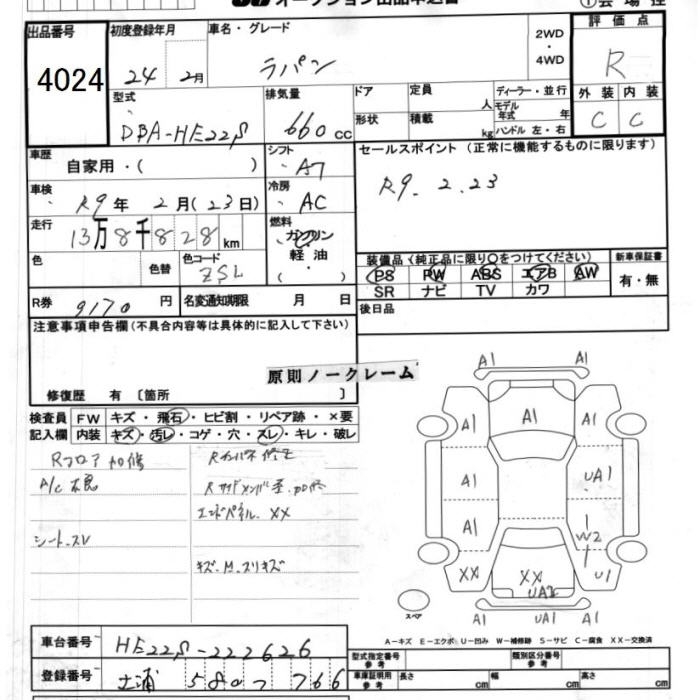 オークション出品申込書
①会場控
出品番号
4024
初度登録年月
24年2月
車名・グレード
ラパン
2WD
・
4WD
評価点
R
型式
DBA-HE22S
排気量
660cc
ドア
形状
定員 人
積載 kg
ディーラー・並行
モデル年式 年
ハンドル 左・右
外装 内装
C C
車歴
自家用・( )
シフト
A7
セールスポイント (正常に機能するものに限ります)
R9. 2.23
車検
R9年 2月(23日)
冷房
AC
走行
13万8千828km
燃料
ガソリン
軽油
( )
色
色替
色コード
ZSL
装備品(純正品に限り○をつけてください)
PS PW ABS エアB AW
SR ナビ TV カワ
新車保証書
有・無
R券 9170円
名変通知期限 月 日
後日品
注意事項申告欄(不具合内容等は具体的に記入して下さい)
原則ノークレーム
修復歴 有 〔箇所 〕
検査員 FW キズ・飛石・ヒビ割・リペア跡・×要
記入欄 内装 キズ・汚レ・コゲ・穴・スレ・キレ・破レ
Rフロア加修
A/C不良
シートスレ
R サイドメンバ歪.加修
エンドパネル XX
キズ.M.スリキズ
A1 A1
A1 A1 A1
A1 UA1
A1 W2
XX XX U1
UA1
A1 A1
スペア
A-キズ E-エクボ U-凹み W-補修跡 S-サビ C-腐食 XX-交換済
車台番号 HE22S-222626
登録番号 土浦 580 ラ 766
型式指定番号
参考
類別区分番号
参考
車庫証明用
参考
長さ cm
幅 cm
高さ cm